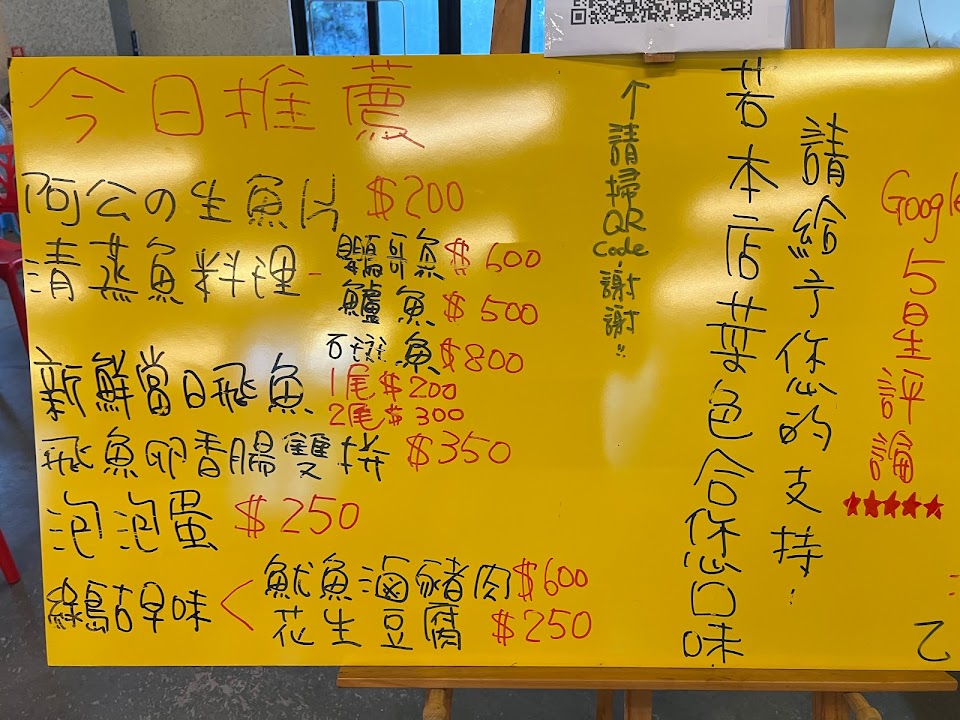 今日推薦
阿公の生魚片 $200
清蒸魚料理- 鸚哥魚 $600
鱸魚 $500
石斑魚 $800
新鮮當日飛魚 1尾$200
2尾$300
飛魚卵香腸雙拼 $350
泡泡蛋 $250
綠島古早味 < 魷魚滷豬肉 $600
花生豆腐 $250
↑請掃QR Code!謝謝!!
若本店菜色合您口味
請給予您的支持!
Google 5星評論
★★★★★